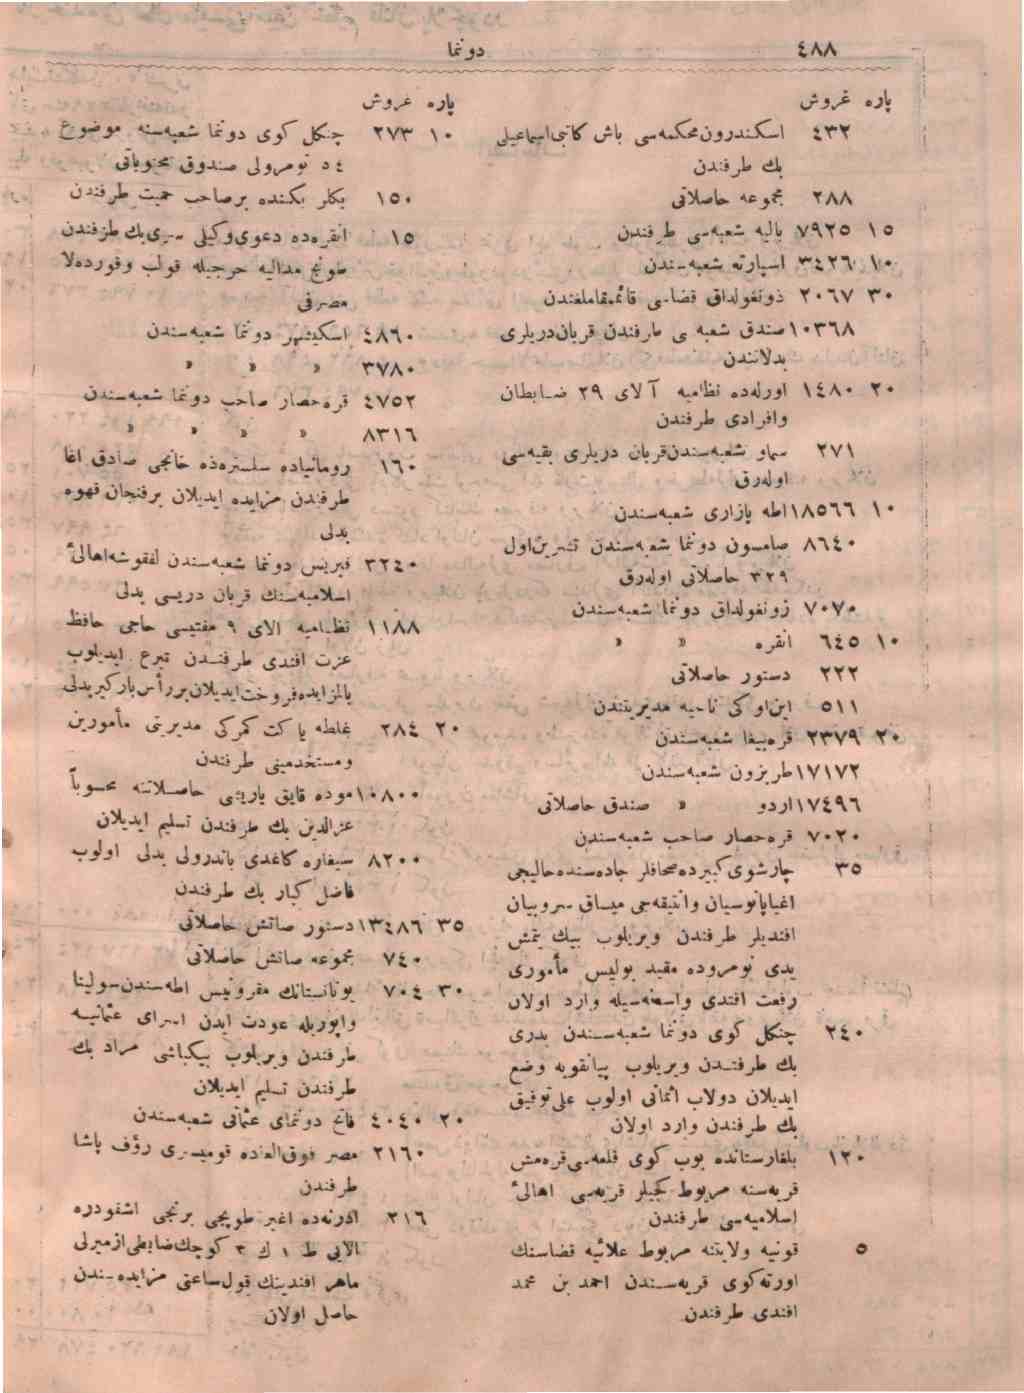 ٤٨٨
دونما
پاره غروش
٤٣٢ اسكندرون محكمه‌سی باش كاتبی اسماعیل
بك طرفندن
٢٨٨ مجموعه حاصلاتی
١٥ ٧٩٢٥ بالیه شعبه‌سی طرفندن
١٠ ٣٤٢٦ اسپارته شعبه‌سندن
٣٠ ٢٠٦٧ ذونغولداق قضاسی قائممقاملغندن
١٠٣٦٨ صندق شعبه‌سی طرفندن قربان دریلری
بدلاتندن
٢٠ ١٤٨٠ اورله‌ده نظامیه آلای ٢٩ ضابطان
وافرادی طرفندن
٢٧١ سماو شعبه‌سندن قربان دریلری بقیه‌سی
اوله‌رق
١٠ ١٨٥٦٦ اطه پازاری شعبه‌سندن
٨٦٤٠ صامسون دونما شعبه‌سندن تشرین اول
٣٢٩ حاصلاتی اوله‌رق
٧٠٧٠ زونغولداق دونما شعبه‌سندن
١٠ ٦٤٥ انقره » »
٢٢٢ دستور حاصلاتی
٥١١ این اوكی ناحیه مدیریتندن
٢٠ ٢٣٧٩ قره‌بیغا شعبه‌سندن
١٧١٧٢ طربزون شعبه‌سندن
١٧٤٩٦ اردو » صندق حاصلاتی
٧٠٢٠ قره‌حصار صاحب شعبه‌سندن
٣٥ چارشوی كبیرده صحافلر جاده‌سنده حالیجی
اغیاپانوسیان وانتیقه‌جی میساق سروبیان
افندیلر طرفندن ویریلوب بیك یتمش
یدی نومروده مقید پولیس مأموری
رفعت افندی واسطه‌سیله وارد اولان
٢٤٠ چنكل كوی دونما شعبه‌سندن بدری
بك طرفندن ویریلوب پیانقویه وضع
ایدیلان دولاب اثمانی اولوب علی توفیق
بك طرفندن وارد اولان
١٢٠ بلغارستانده یوب كوی قلعه‌سی قره‌مش
قریه‌سنه مربوط كجیلر قریه‌سی اهالیٔ
اسلامیه‌سی طرفندن
٥ قونیه ولایتنه مربوط علائیه قضاسنك
اورته‌كوی قریه‌سندن احمد بن محمد
افندی طرفندن
پاره غروش
١٠ ٢٧٣ چنكل كوی دونما شعبه‌سنه موضوع
٥٤ نومرولی صندوق محتویاتی
١٥٠ بكلر بكنده بر صاحب حمیت طرفندن
١٥ انقره‌ده دعوی وكیلی سری بك طرفندن
طونج مدالیه خرجیله قولب وقورده‌لا
مصرفی
٤٨٦٠ اسكیشهر دونما شعبه‌سندن
٣٧٨٠ » » »
٤٧٥٢ قره‌حصار صاحب دونما شعبه‌سندن
٨٣١٦ » » » »
١٦٠ رومانیاده سلستره‌ده خانجی صادق اغا
طرفندن مزایده ایدیلان برفنجان قهوه
بدلی
٣٢٤٠ قبریس دونما شعبه‌سندن لفقوشه اهالیٔ
اسلامیه‌سنك قربان دریسی بدلی
١١٨٨ نظامیه الای ٩ مفتیسی حاجی حافظ
عزت افندی طرفندن تبرع ایدیلوب
بالمزایده فروخت ایدیلان بررأس باركیر بدلی
٢٠ ٢٨٤ غلطه پاكت كمركی مدیریتی مأمورین
ومستخدمینی طرفندن
١٠٨٠٠ موده قایق یاریشی حاصلاتنه محسوباً
عزالدین بك طرفندن تسلیم ایدیلان
٨٢٠٠ سیغاره كاغدی باندرولی بدلی اولوب
فاضل كبار بك طرفندن
٣٥ ١٣٤٨٦ دستور صاتش حاصلاتی
٧٤٠ مجموعه صاتش حاصلاتی
٣٠ ٧٠٤ یونانستانك مقرونیس اطه‌سندن سولینا
واپوریله عودت ایدن اسرای عثمانیه
طرفندن ویریلوب بیكباشی مراد بك
طرفندن تسلیم ایدیلان
٢٠ ٤٠٤٠ فاتح دونمای عثمانی شعبه‌سندن
٢١٦٠ مصر فوق‌العاده قومیسری رؤف پاشا
طرفندن
٢١٦ ادرنه‌ده اغیر طوپجی برنجی اشقودره
الایی ط ١ ك ٣ كوچك ضابطی ازمیرلی
ماهر افندینك قول ساعتی مزایده‌سندن
حاصل اولان